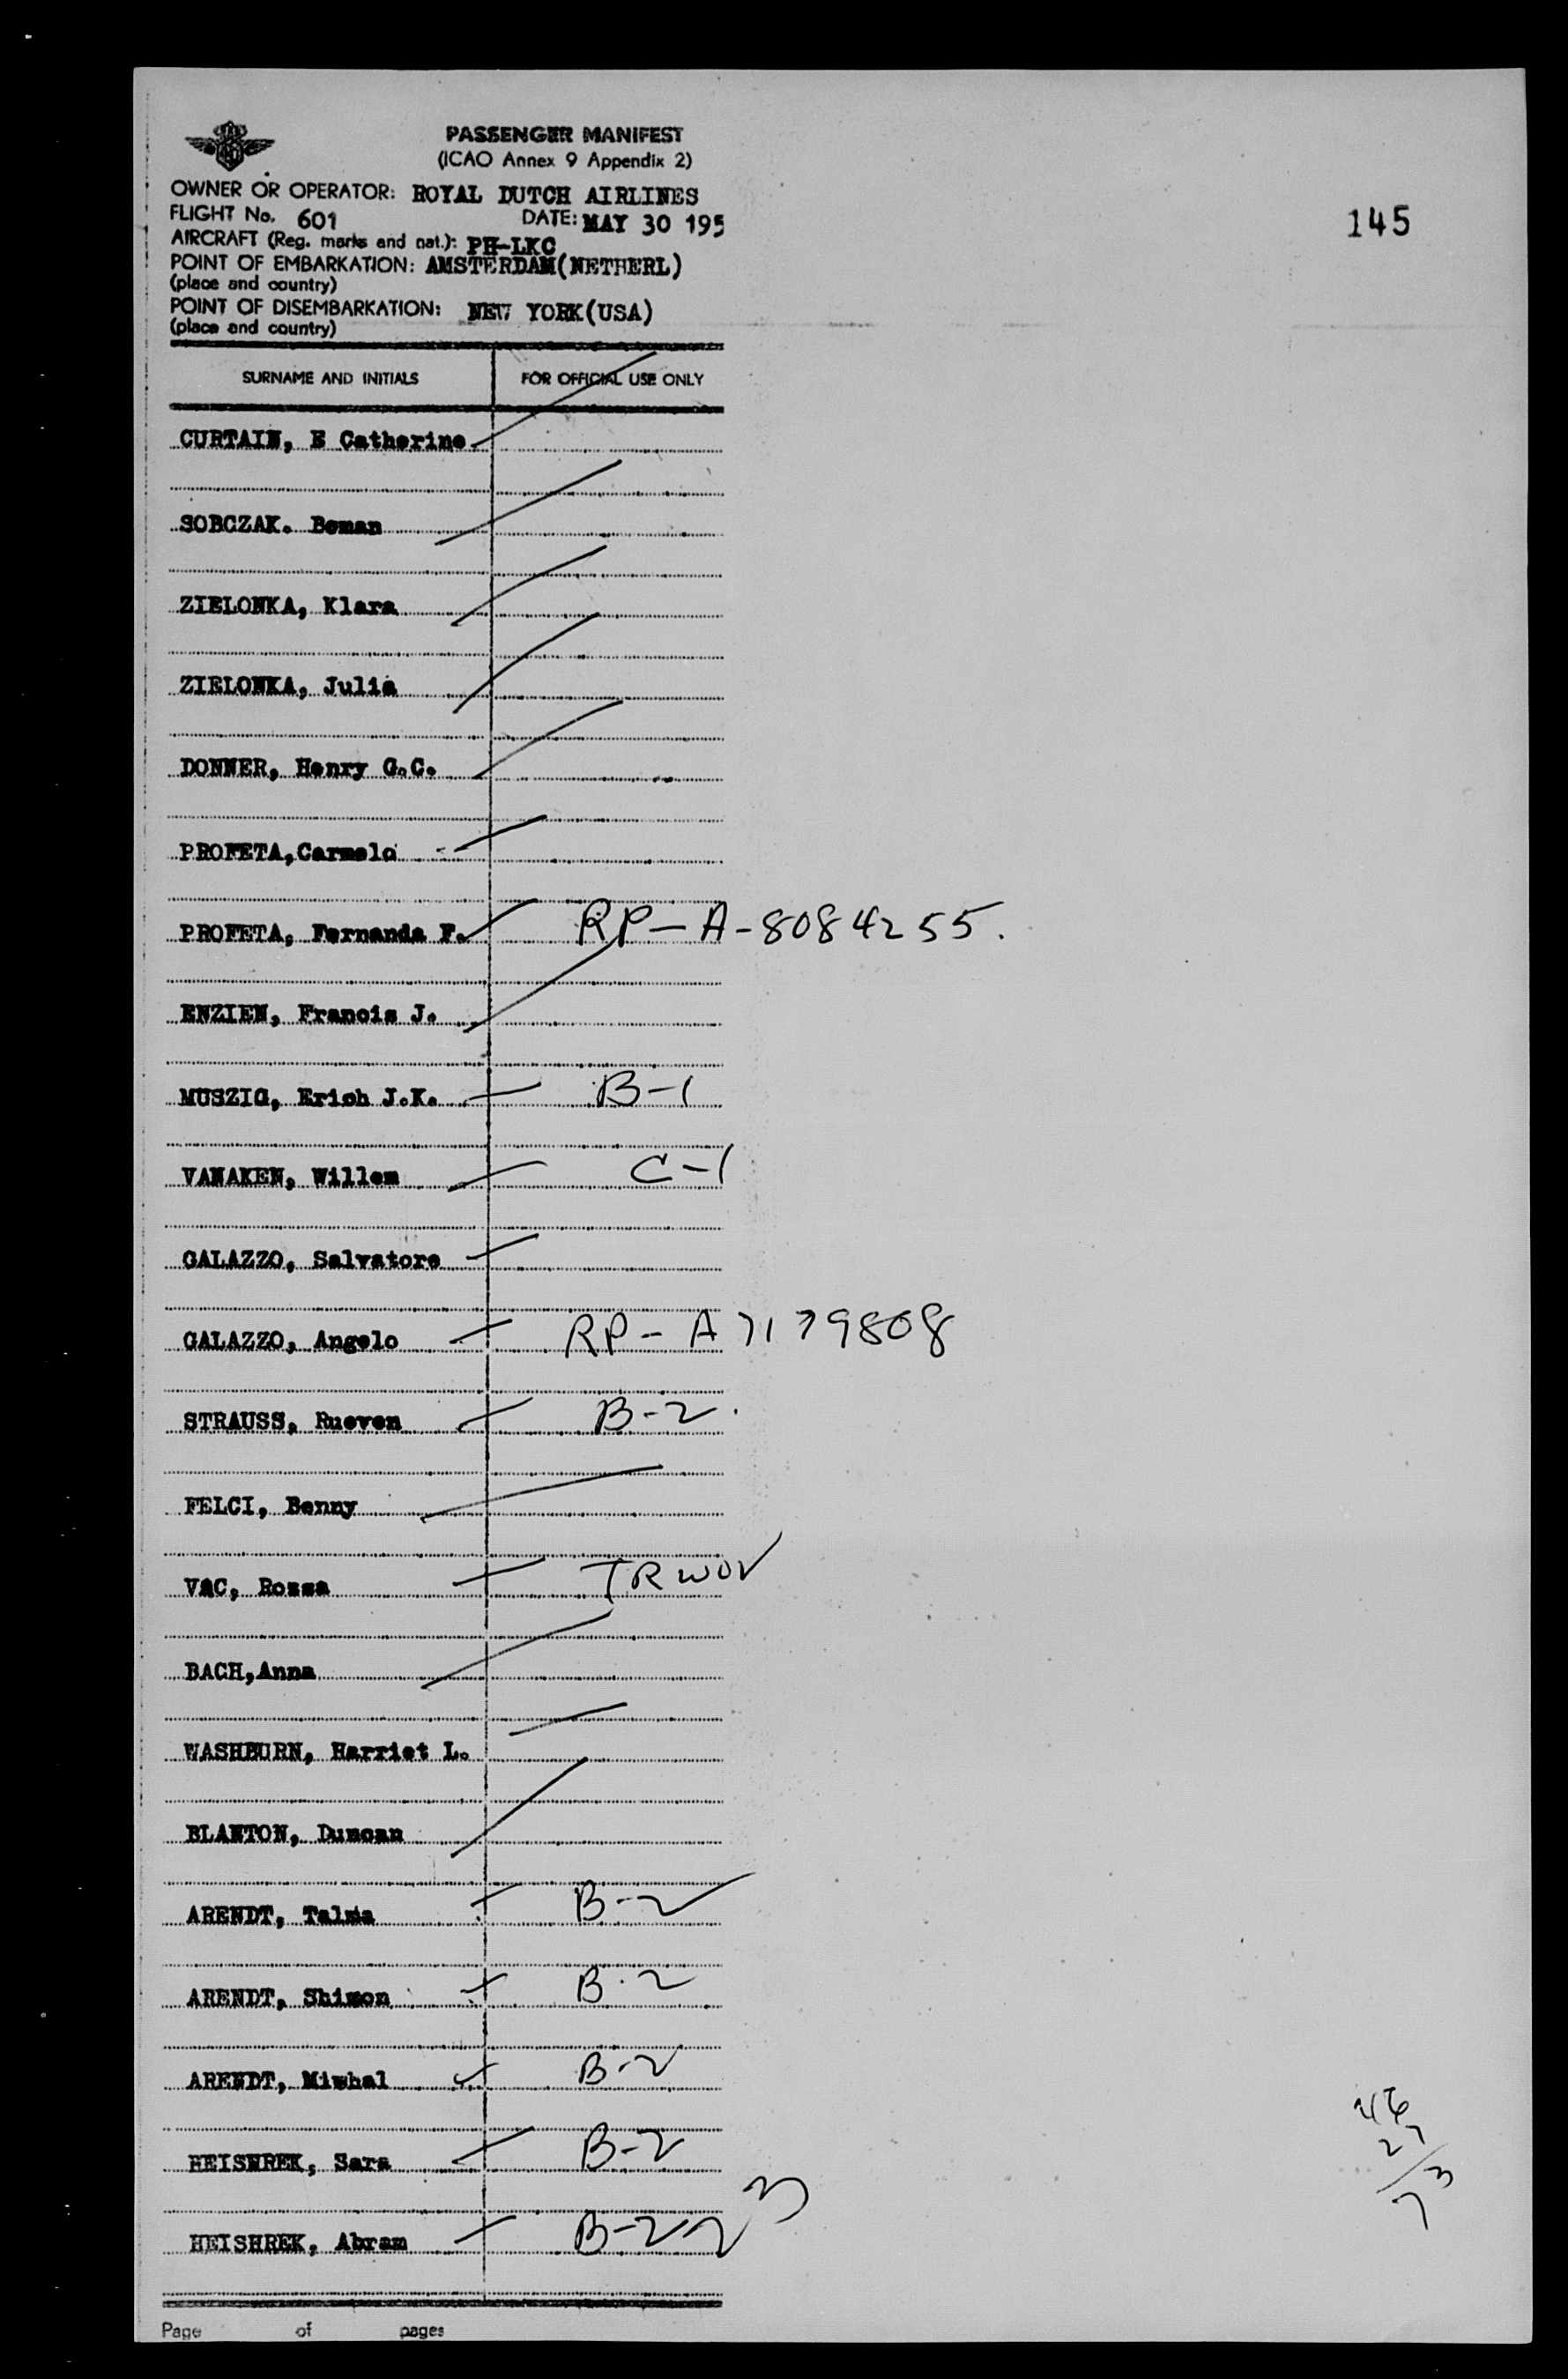 PASSENGER MANIFEST
(ICAO Annex 9 Appendix 2)
OWNER OR OPERATOR: ROYAL DUTCH AIRLINES
FLIGHT No. 601 DATE: MAY 30 195
145
AIRCRAFT (Reg. marks and nat.): PH-LKC
POINT OF EMBARKATION: AMSTERDAM(NETHERL)
(place and country)
POINT OF DISEMBARKATION: NEW YORK(USA)
(place and country)
SURNAME AND INITIALS FOR OFFICIAL USE ONLY
CURTAIN, E Catherine
SOBCZAK. Boman
ZIELONKA, Klara
ZIELONKA, Julia
DONNER, Henry G.C.
PROFETA,Carmelo
PROFETA, Fernanda F. RP-A-8084255.
ENZIEN, Francis J.
MUSZIG, Erich J.K. B-1
VANAKEN, Willem C-1
GALAZZO, Salvatore
GALAZZO, Angelo RP-A7179808
STRAUSS, Rueven B-2.
FELCI, Benny
VAC, TRWOV
BACH,Anna
WASHBURN, Harriet L.
BLANTON, Duncan
ARENDT, Talma B-2
ARENDT, Shimon B-2
ARENDT, B-2
HEISHREK, Sara B-2
HEISHREK, Abram B-2
23
46
27
73
Page of pages